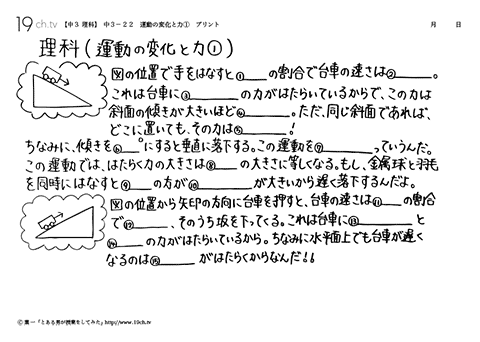 19ch.tv 【中3 理科】 中3-22 運動の変化と力① プリント 月 日
理科(運動の変化と力①)
図の位置で手をはなすと①＿の割合で台車の速さは②＿。
これは台車に③＿の力がはたらいているからで、この力は
斜面の傾きが大きいほど④＿。ただ、同じ斜面であれば、
どこに置いても、その力は⑤＿!
ちなみに、傾きを⑥＿°にすると垂直に落下する。この運動を⑦＿っていうんだ。
この運動では、はたらく力の大きさは⑧＿の大きさに等しくなる。もし、金属球と羽毛
を同時にはなすと⑨＿の方が⑩＿が大きいから遅く落下するんだよ。
図の位置から矢印の方向に台車を押すと、台車の速さは⑪＿の割合
で⑫＿、そのうち坂を下ってくる。これは台車に⑬＿と
⑭＿の力がはたらいているから。ちなみに水平面上でも台車が遅く
なるのは⑮＿がはたらくからなんだ!!
© 葉一「とある男が授業をしてみた」http://www.19ch.tv